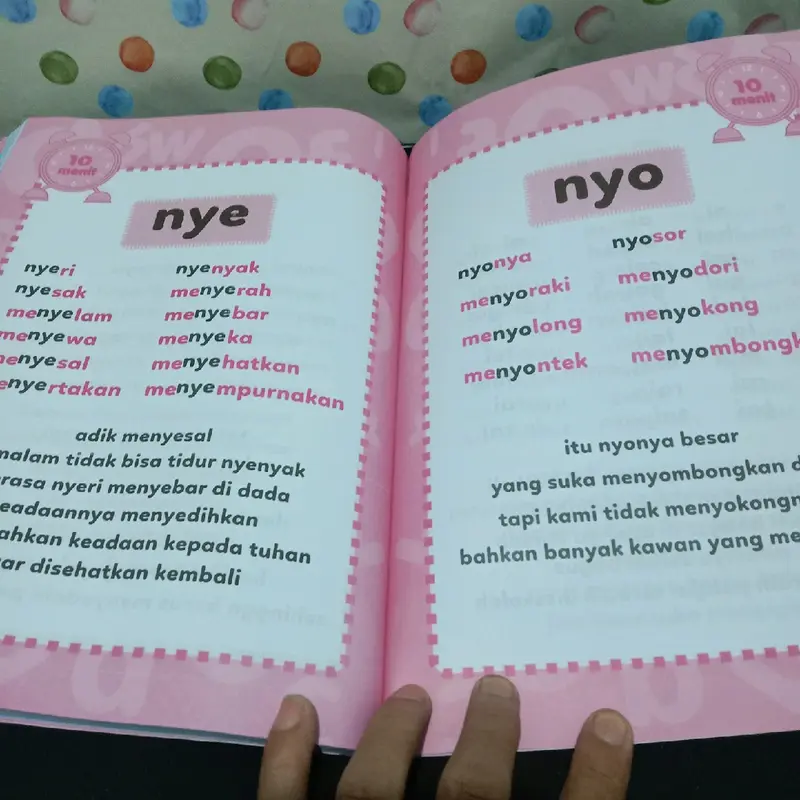 10
menit
nye
nyeri nyenyak
nyesak menyerah
menyelam menyebar
menyewa menyeka
menyesal menyehatkan
enyertakan menyempurnakan
adik menyesal
malam tidak bisa tidur nyenyak
rasa nyeri menyebar di dada
eadaannya menyedihkan
ahkan keadaan kepada tuhan
ar disehatkan kembali
10
menit
nyo
nyonya nyosor
menyoraki menyodori
menyolong menyokong
menyontek menyombongk
itu nyonya besar
yang suka menyombongkan d
tapi kami tidak menyokongn
bahkan banyak kawan yang me